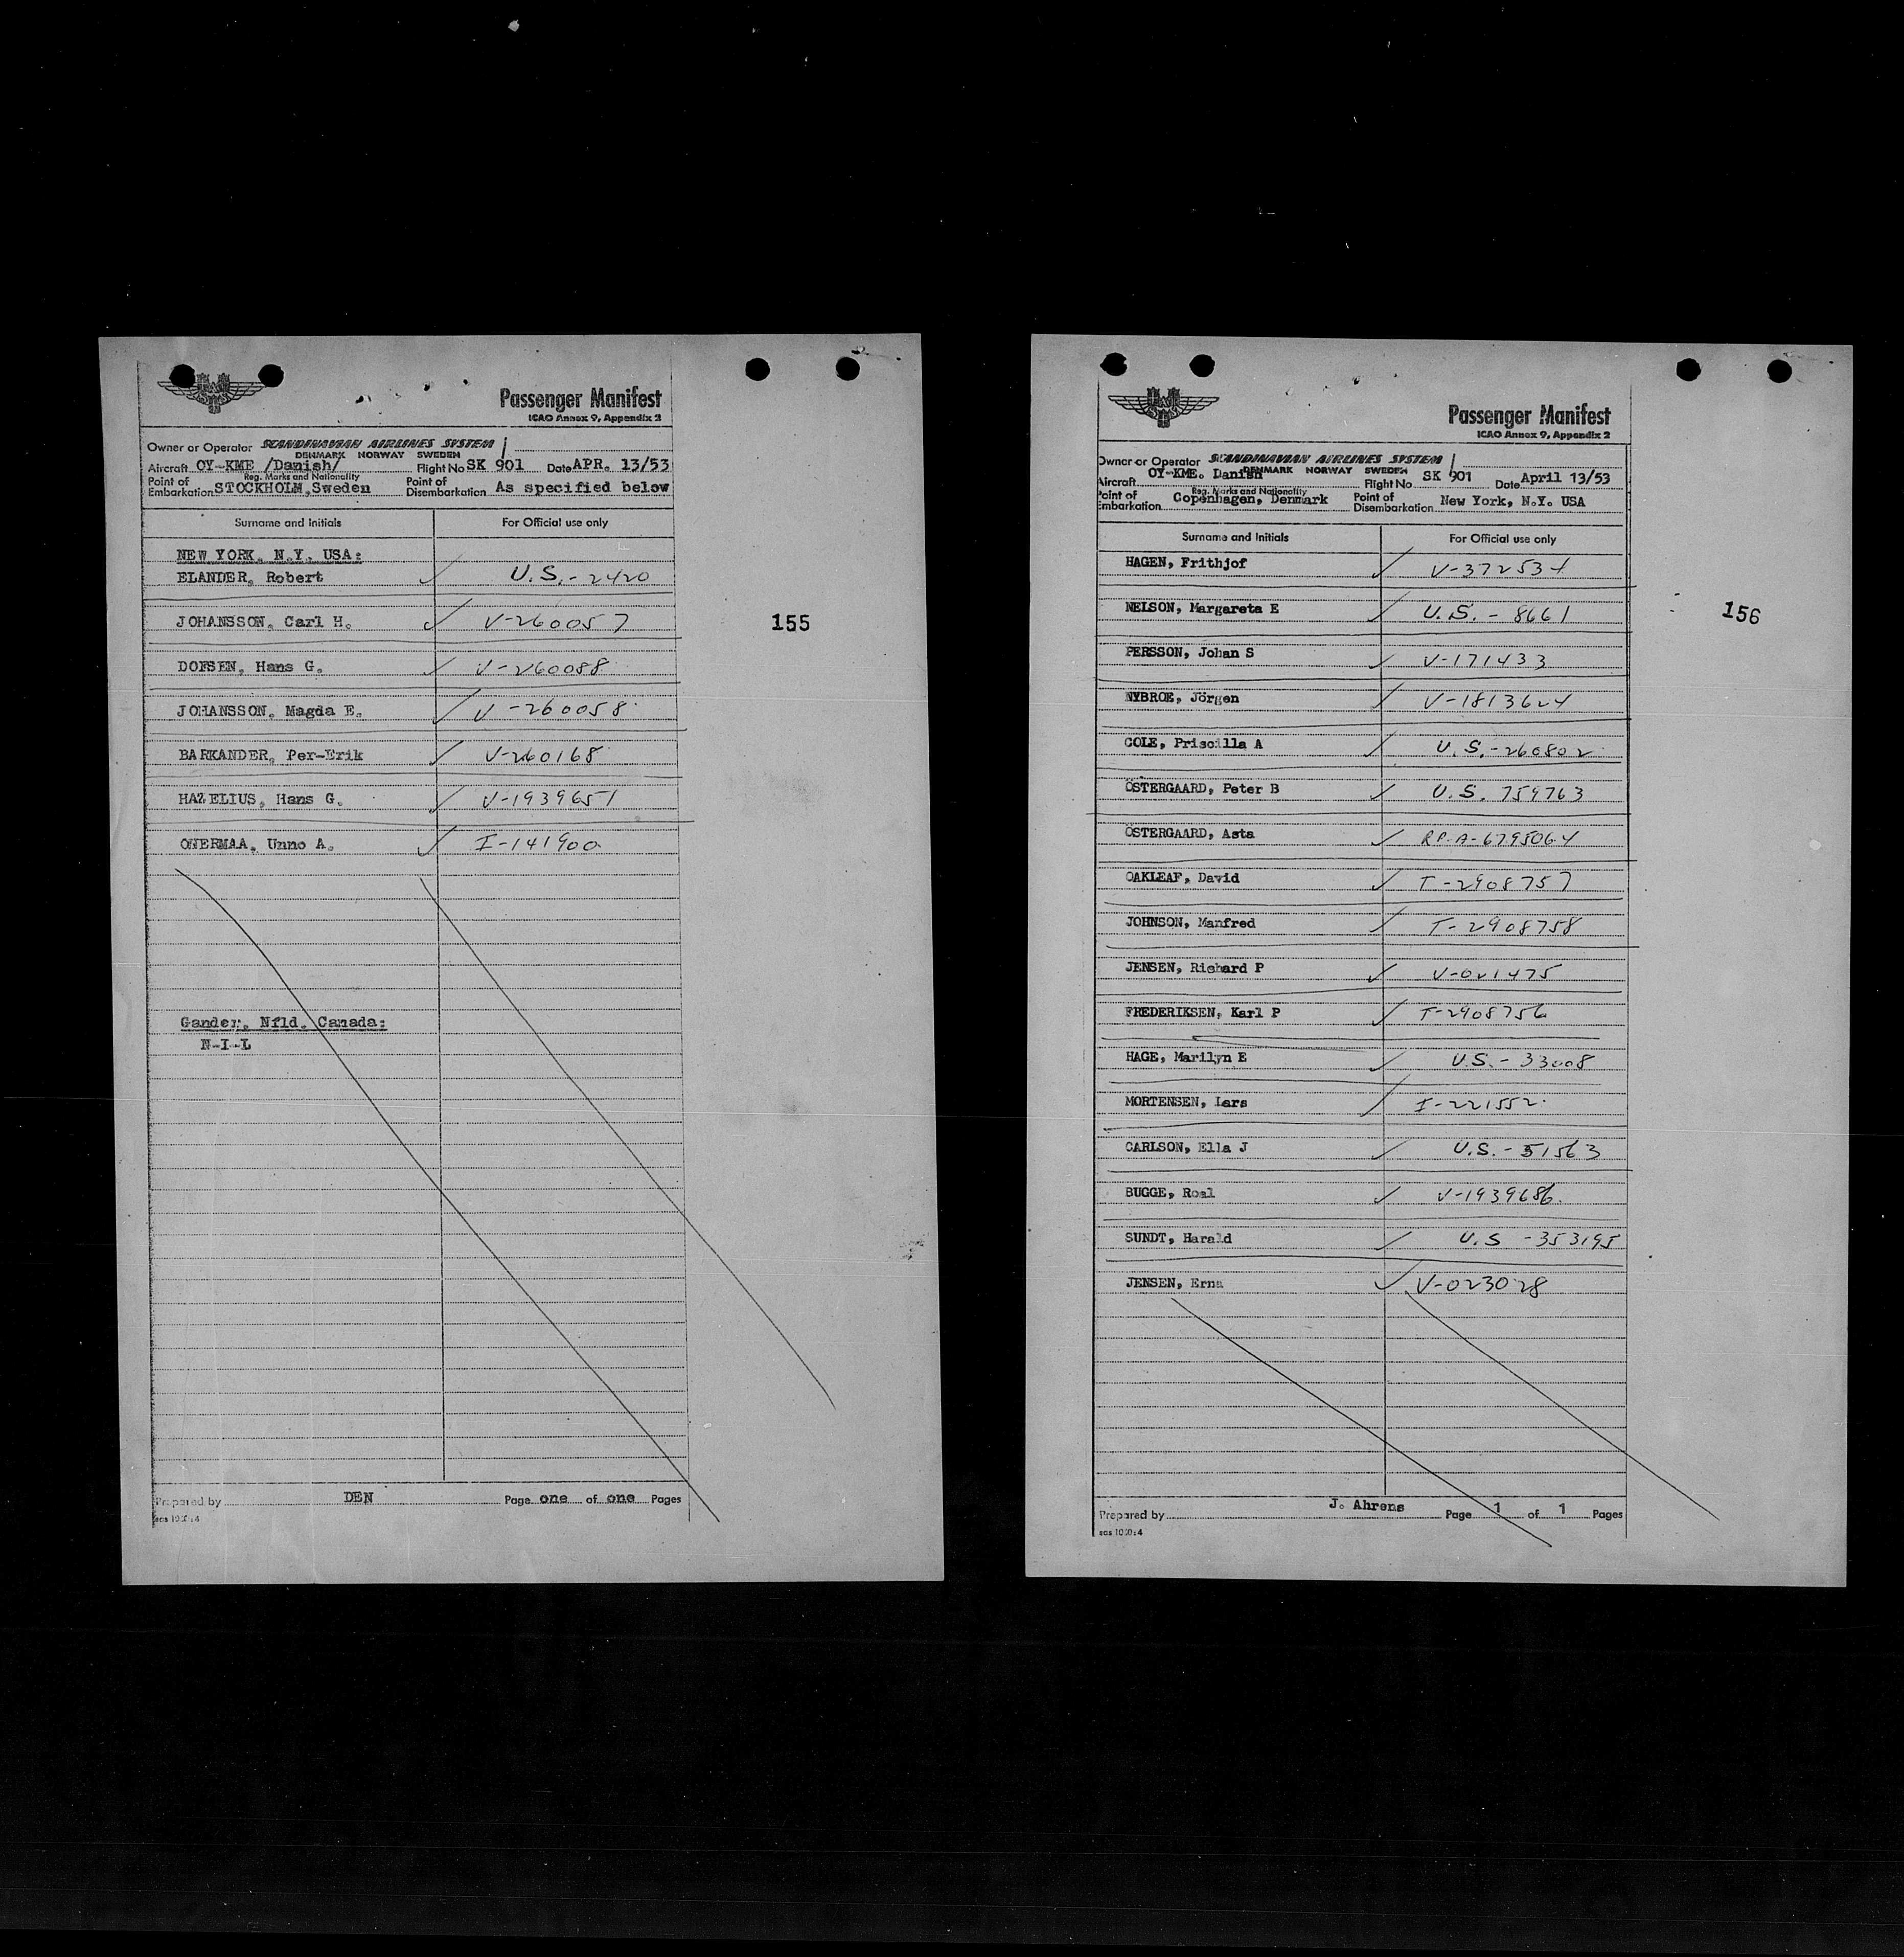 Passenger Manifest
ICAO Annex 9, Appendix 2
Owner or Operator SCANDINAVIAN AIRLINES SYSTEM
DENMARK NORWAY SWEDEN
Aircraft OY-KME /Danish/ Flight No SK 901 Date APR. 13/53
Reg. Marks and Nationality
Point of Embarkation STOCKHOLM, Sweden Point of Disembarkation As specified below
Surname and Initials For Official use only
NEW YORK, N.Y. USA:
ELANDER, Robert U.S.-2420
JOHANSSON, Carl H. V-260057
DOFSEN, Hans G. V-260088
JOHANSSON, Magda E. V-260058
BARKANDER, Per-Erik V-260168
HAZELIUS, Hans G. V-1939651
ONERMAA, Unno A. I-141900
Gander, Nfld. Canada:
N-I-L
Prepared by DEN Page one of one Pages
155
Passenger Manifest
ICAO Annex 9, Appendix 2
Owner or Operator SCANDINAVIAN AIRLINES SYSTEM
DENMARK NORWAY SWEDEN
Aircraft OY-KME. Danish Flight No SK 901 Date April 13/53
Reg. Marks and Nationality
Point of Embarkation Copenhagen, Denmark Point of Disembarkation New York, N.Y. USA
Surname and Initials For Official use only
HAGEN, Frithjof V-372534
NELSON, Margareta E U.S.-8661
PERSSON, Johan S V-171433
NYBROE, Jörgen V-1813624
COLE, Priscilla A U.S.-260802
ÖSTERGAARD, Peter B U.S. 759763
ÖSTERGAARD, Asta RP.A-6795064
OAKLEAF, David T-2908757
JOHNSON, Manfred T-2908758
JENSEN, Richard P V-021475
FREDERIKSEN, Karl P T-2908756
HAGE, Marilyn E U.S.-33008
MORTENSEN, Lars I-221552
CARLSON, Ella J U.S.-51563
BUGGE, Roal V-1939686
SUNDT, Harald U.S-353195
JENSEN, Erna V-023028
Prepared by J. Ahrens Page 1 of 1 Pages
156